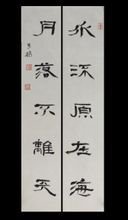 水流原在海
月落不離天